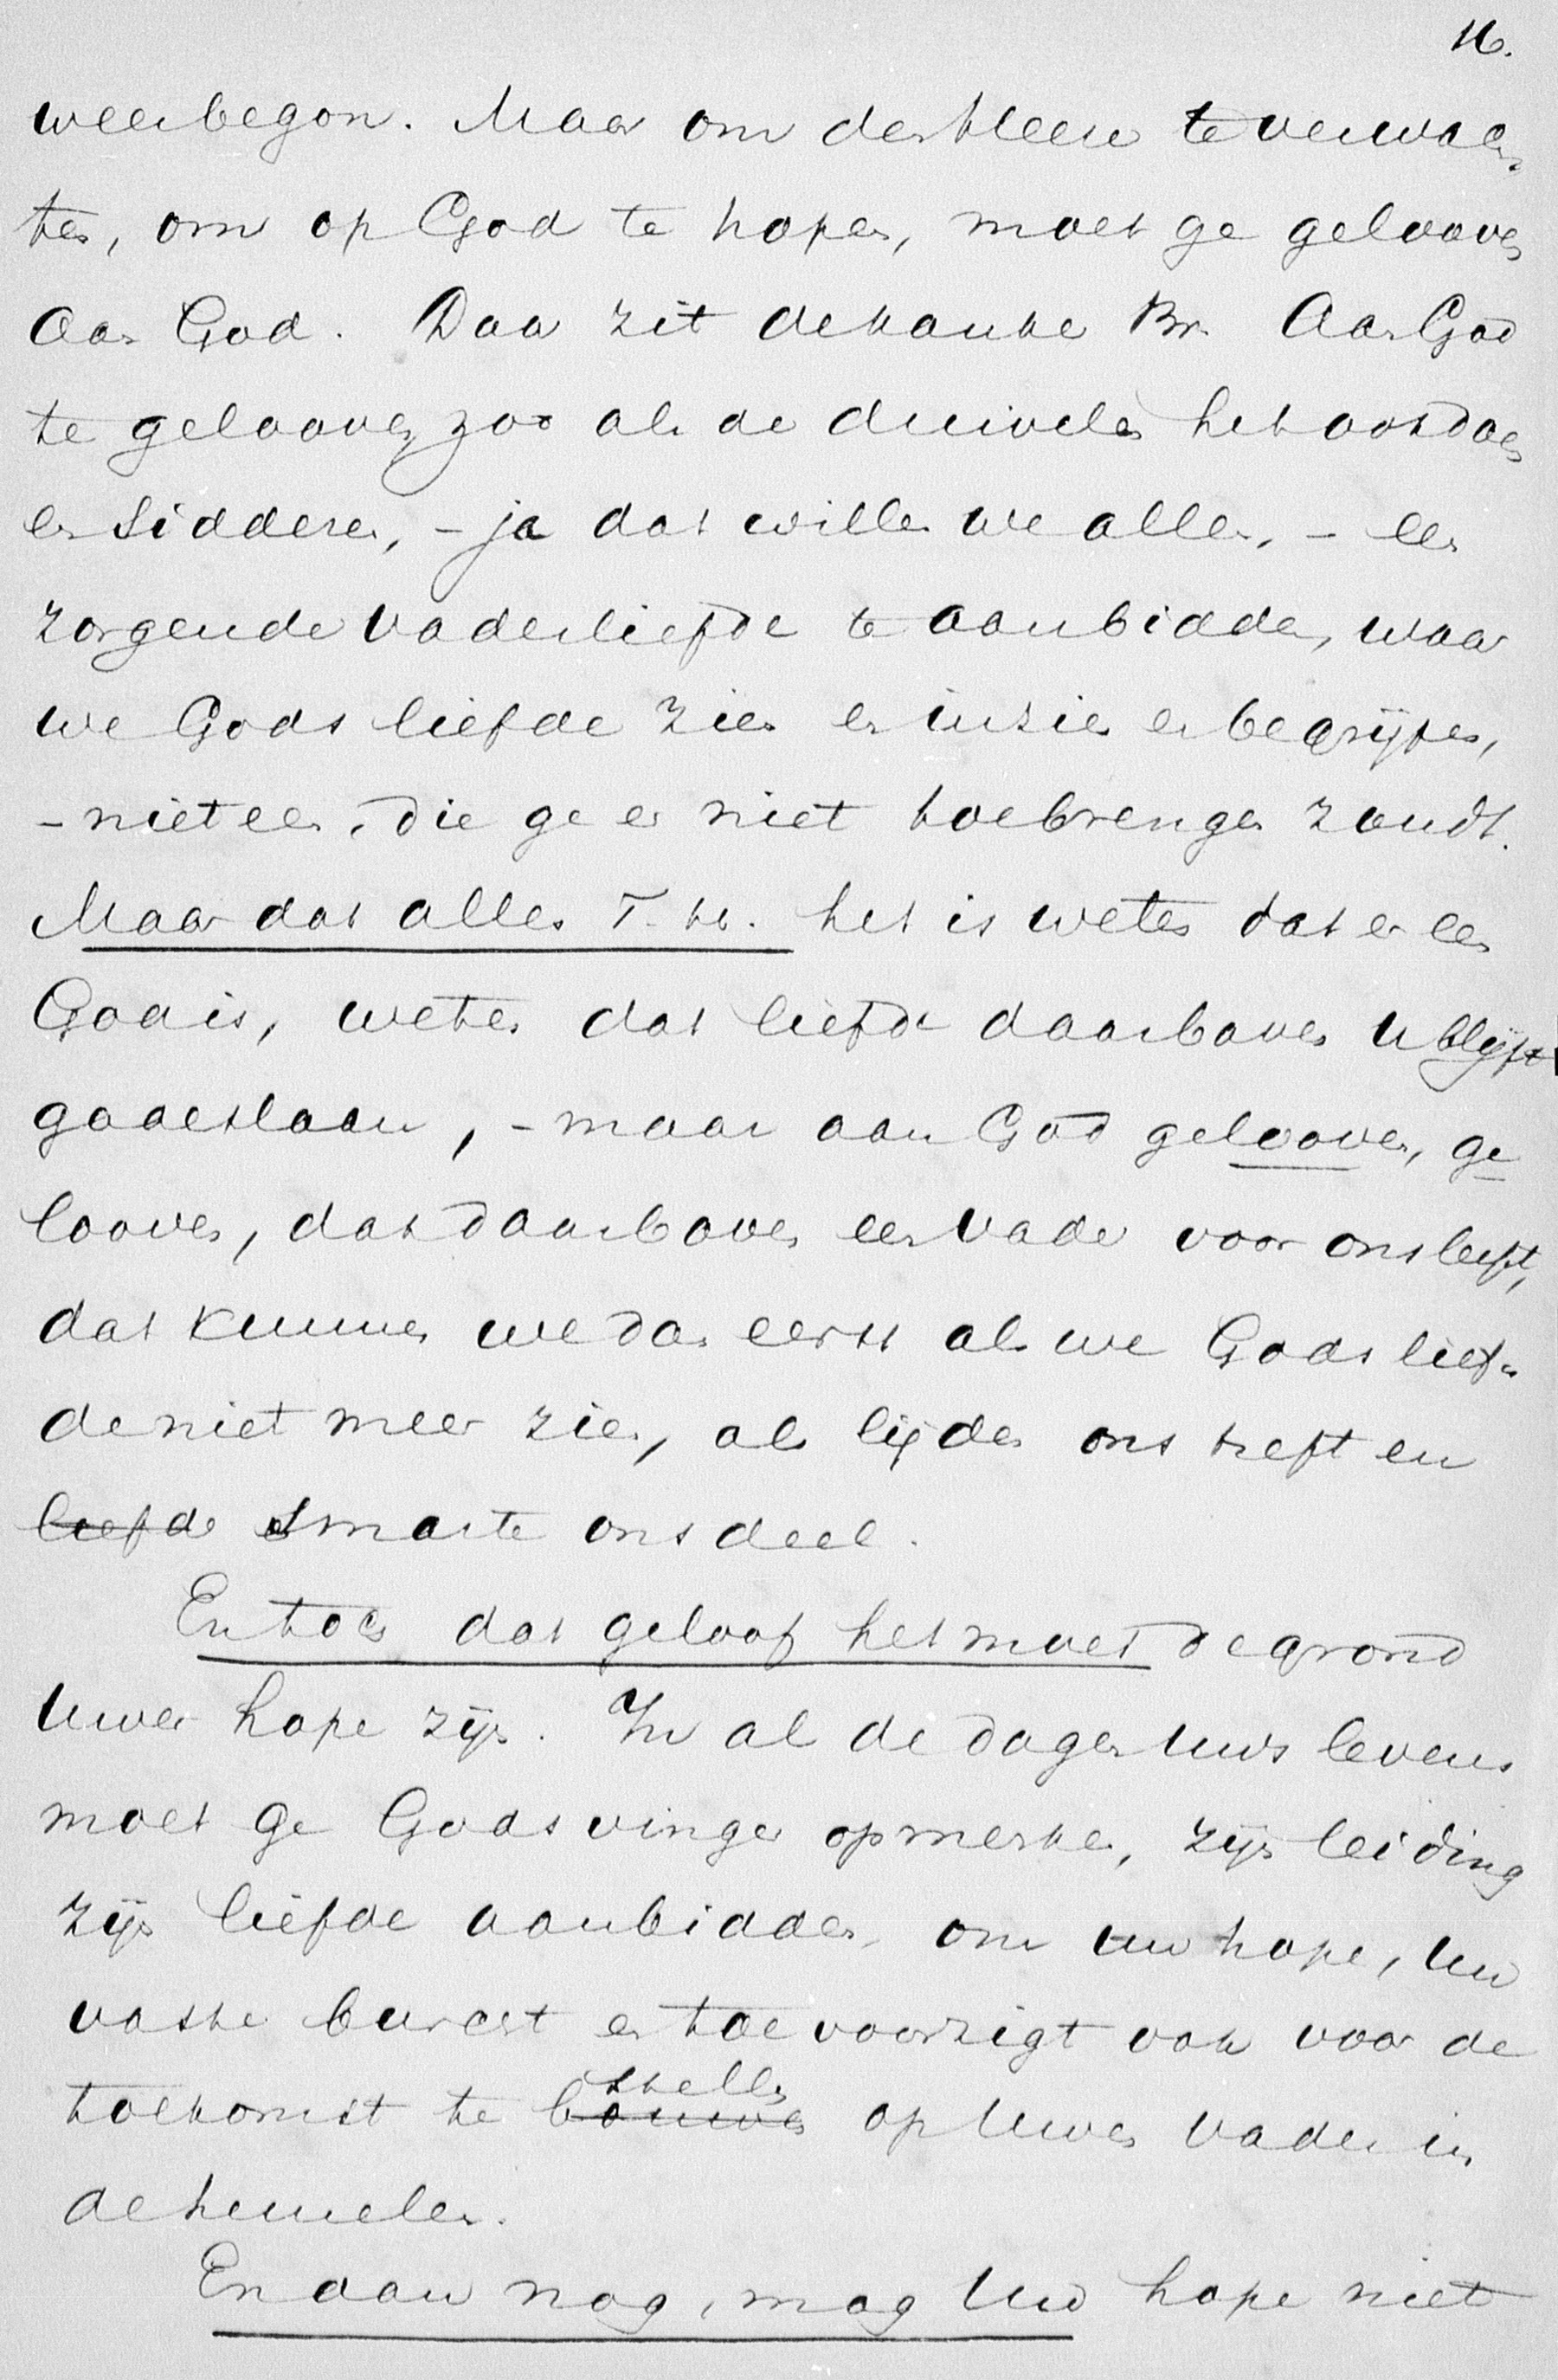 16.
weer begon. Maar om des Heeren te verwach
ten, om op God te hopen, moet ge gelooven
aan God. Daar zit de kanker Br. Aan God
te gelooven zoo als de duivelen het ook doen
en sidderen, – ja dat willen we allen, – een
zorgende vaderliefde te aanbidden, waar
we Gods liefde zien en inzien en begrijpen,
– niet een, die ge er niet toebrengen zoudt.
Maar dat alles T. h. het is weten dat er een
God is, weten dat liefde daarboven u blijft
gadeslaan, – maar aan God gelooven, ge
looven, dat daarboven een vader voor ons leeft,
dat kunnen we dan eerst als we Gods lief-
de niet meer zien, als lijden ons treft en
liefde smarte ons deel.
En toch dat geloof het moet de grond
uwer hope zijn. In al de dagen uws levens
moet ge Gods vinger opmerken, zijn leiding
zijn liefde aanbidden, om uw hope, uw
vaste burcht en toevoorzigt ook voor de
stellen
toekomst te bouwen op Uwen vader in
de hemelen.
En dan nog, mag Uw hope niet